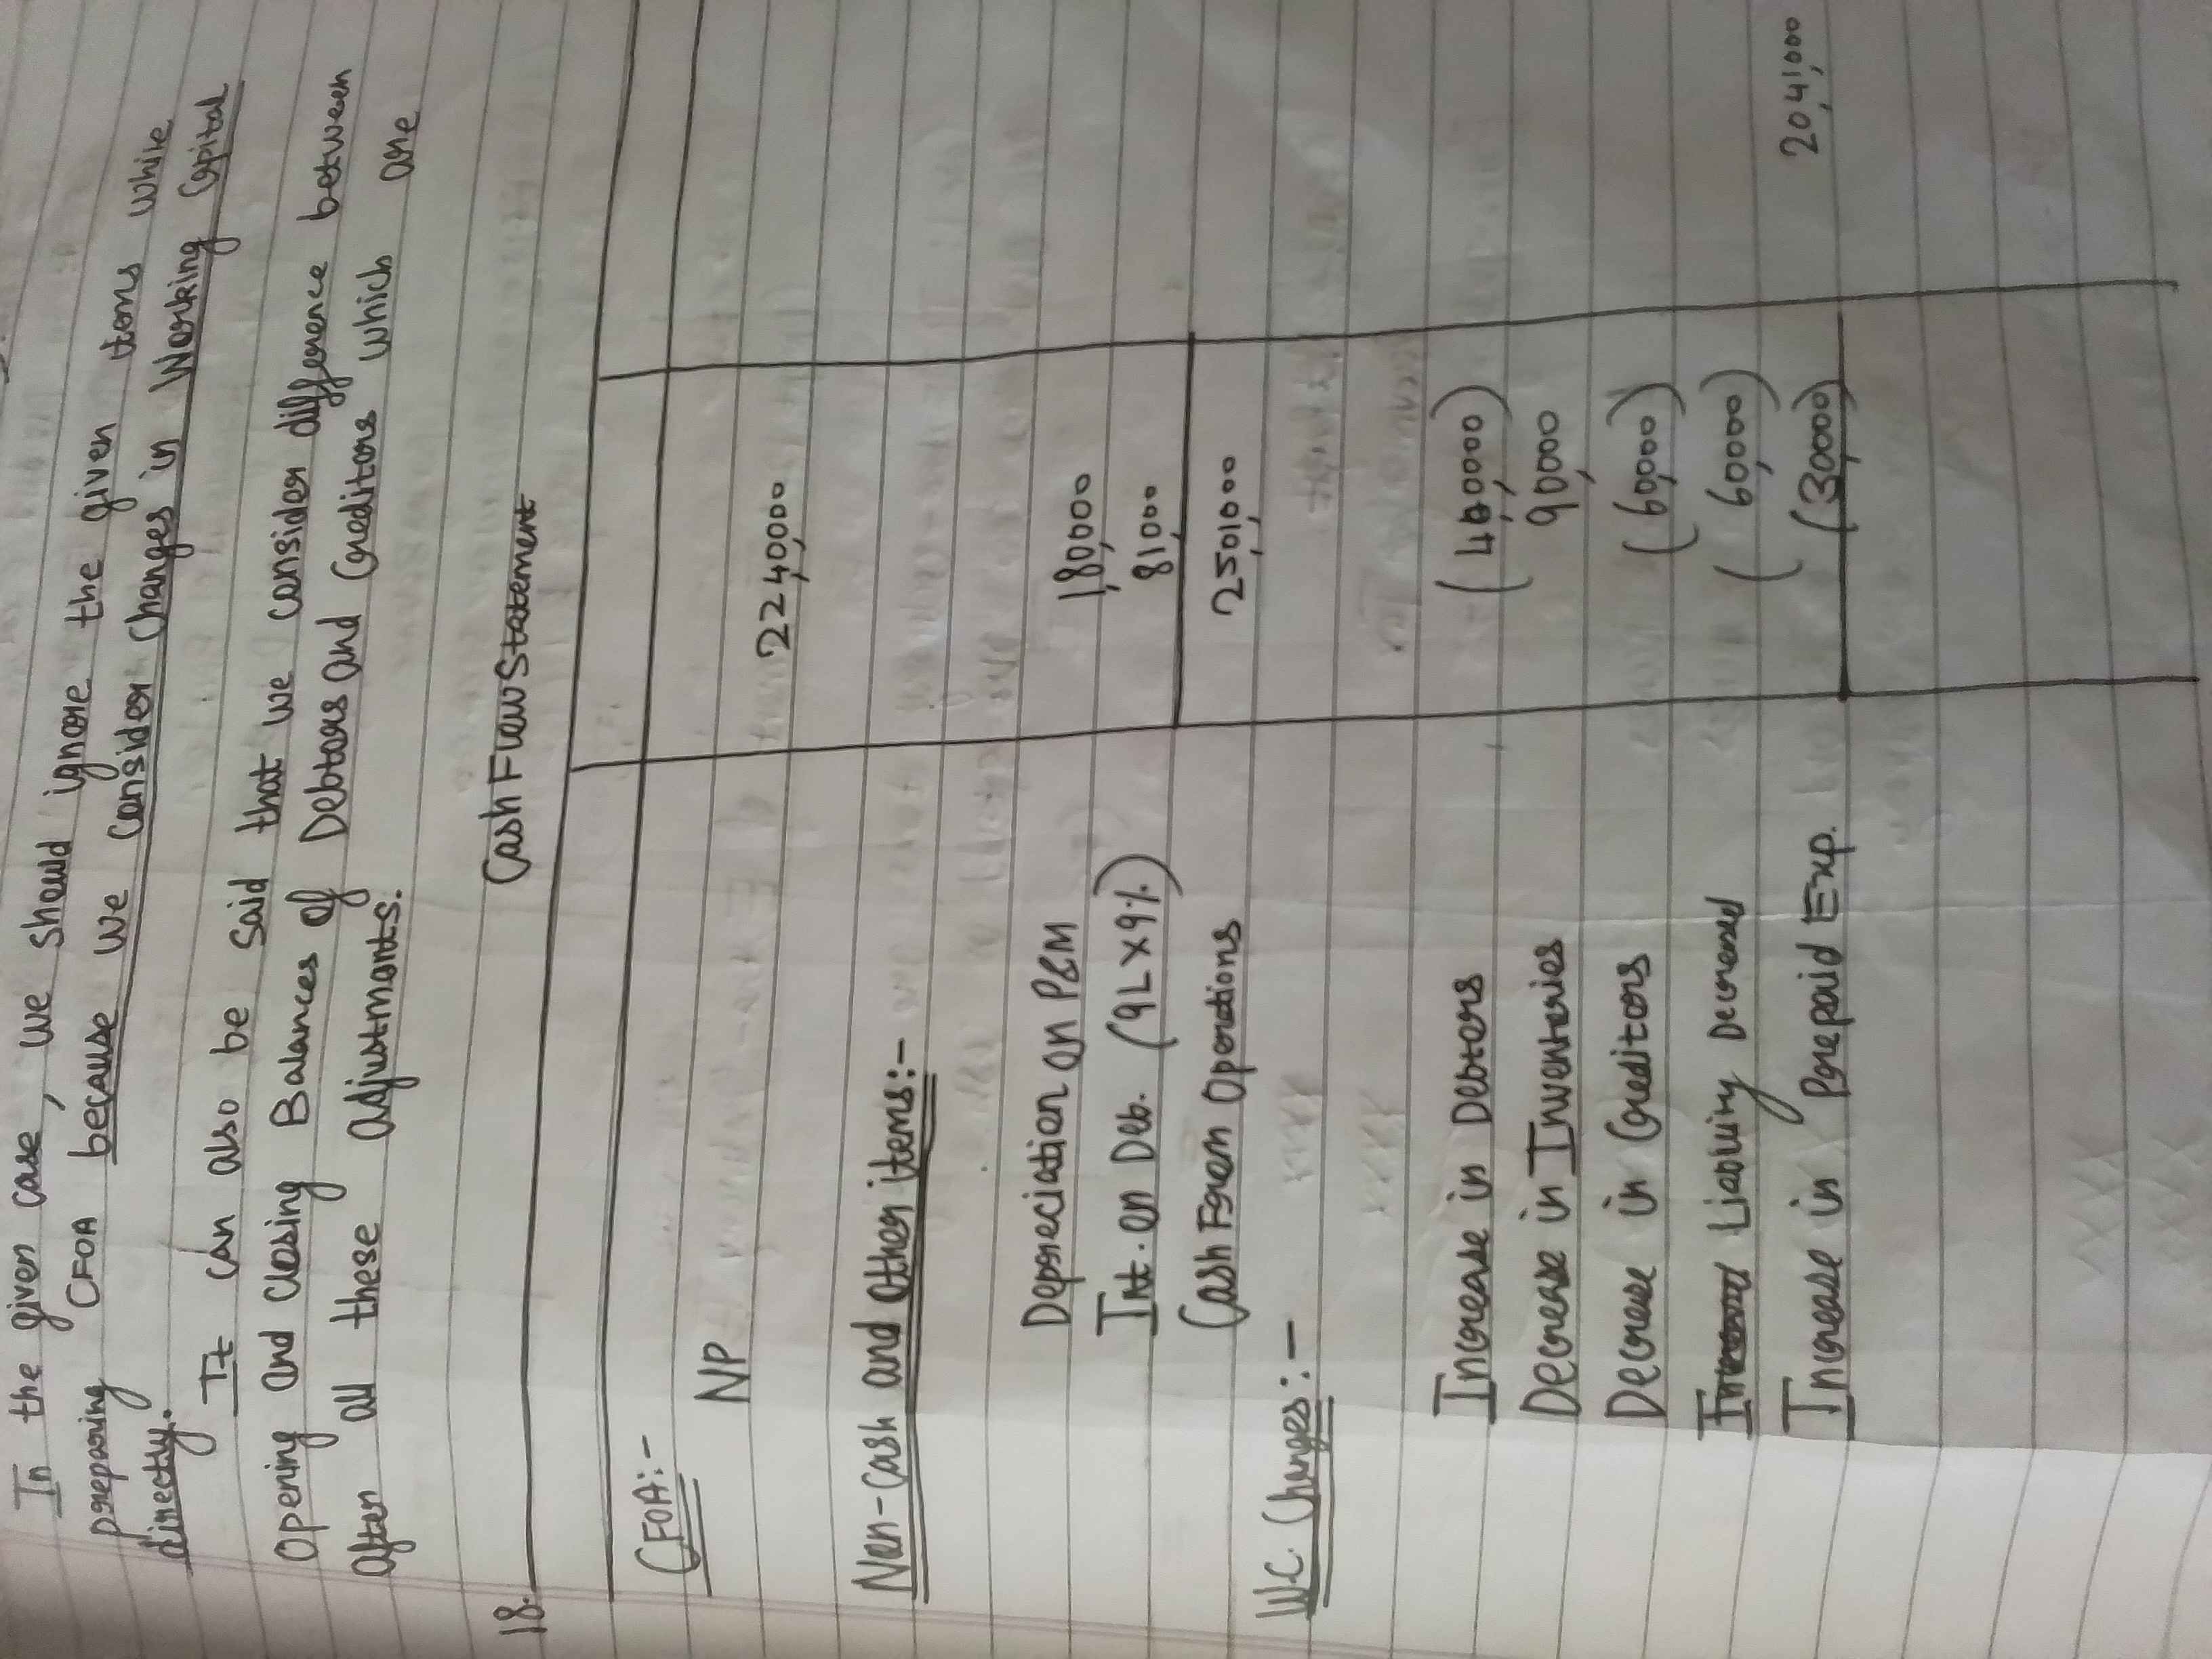 In the given case, we should ignore the given items while
preparing CFOA because we consider changes in Working Capital
directly.
It can also be said that we consider difference between
Opening and closing Balances of Debtors and Creditors which are
after all these adjustments.
18. Cash Flow Statement
CFOA:-
NP 22,40,000
Non-Cash and Other items:-
Depreciation on P&M 1,80,000
Int. on Deb. (9L X 9%) 81,000
Cash From Operations 25,01,000
W.C. Changes:-
Increase in Debtors (4,00,000)
Decrease in Inventories 90,000
Decrease in Creditors (60,000)
Liability Decreased (60,000)
Increase in Prepaid Exp. (30,000) 20,41,000